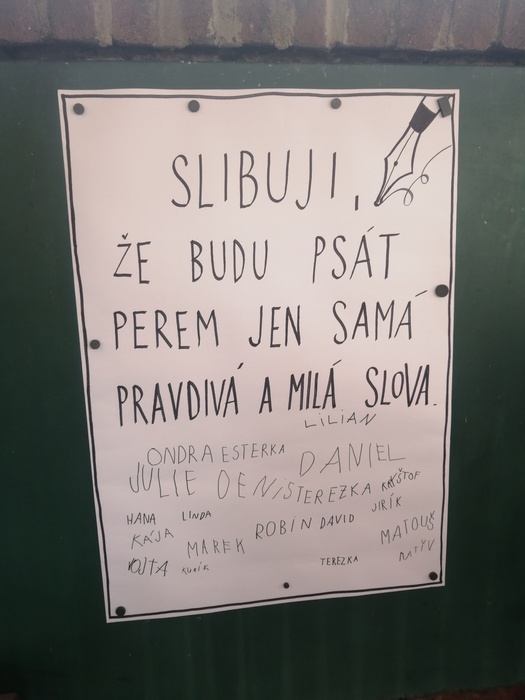 SLIBUJI,
ŽE BUDU PSÁT
PEREM JEN SAMÁ
PRAVDIVÁ A MILÁ SLOVA.
LILIAN
ONDRA ESTERKA DANIEL
JULIE DENIS TEREZKA KRYŠTOF
HANA LINDA ROBIN DAVID JIRÍK
KÁJA MAREK MATOUŠ
VOJTA TEREZKA